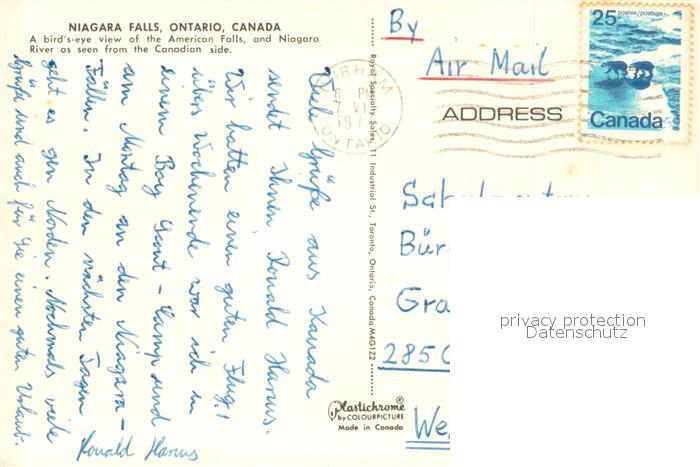 NIAGARA FALLS, ONTARIO, CANADA
A bird's-eye view of the American Falls, and Niagara
River as seen from the Canadian side.
Viele Grüße aus Kanada
sendet Ihnen Ronald Harms.
Wir hatten einen guten Flug!
Übers Wochenende war ich in
einem Boy Scout-Camp und
am Montag an den Niagara-
Fällen. In den nächsten Tagen
geht es gen Norden. Nochmals viele
Grüße und auch für Sie einen guten Urlaub.
Ronald Harms
Royal Specialty Sales, 11 Industrial St., Toronto, Ontario, Canada M4G1Z2
Plastichrome®
by COLOURPICTURE
Made in Canada
By
Air Mail
ONTARIO
25 postes/postage
Canada
ADDRESS
Bür
Gra
285
We
privacy protection
Datenschutz